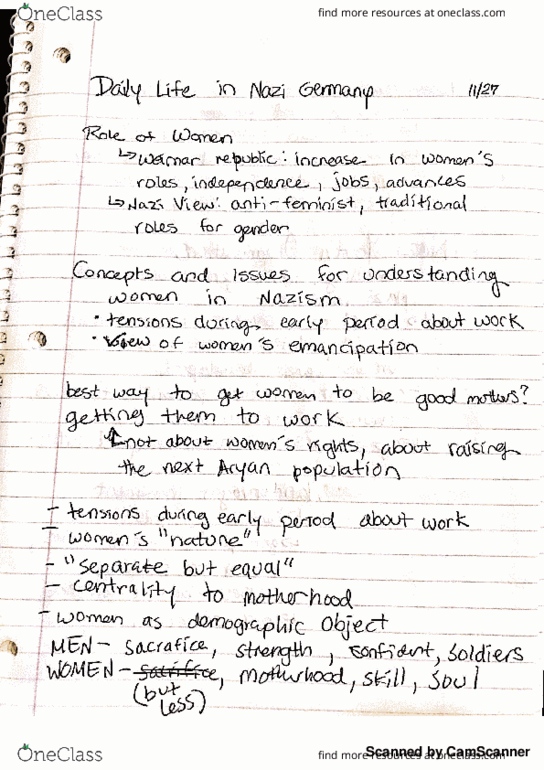 OneClass
find more resources at oneclass.com
Daily Life in Nazi Germany 11/27
Role of Women
↳ Weimar republic: increase in women's
roles, independence, jobs, advances
↳ Nazi View: anti-feminist, traditional
roles for gender
Concepts and issues for understanding
women in Nazism
• tensions during early period about work
• view of women's emancipation
best way to get women to be good mothers?
getting them to work
↑ not about women's rights, about raising
the next Aryan population
- tensions during early period about work
- women's "nature"
- "separate but equal"
- centrality to motherhood
- women as demographic object
MEN - sacrafice, strength, confident, soldiers
WOMEN - sacrifice, motherhood, skill, soul
(but
less)
OneClass
find more resources at oneclass.com
Scanned by CamScanner